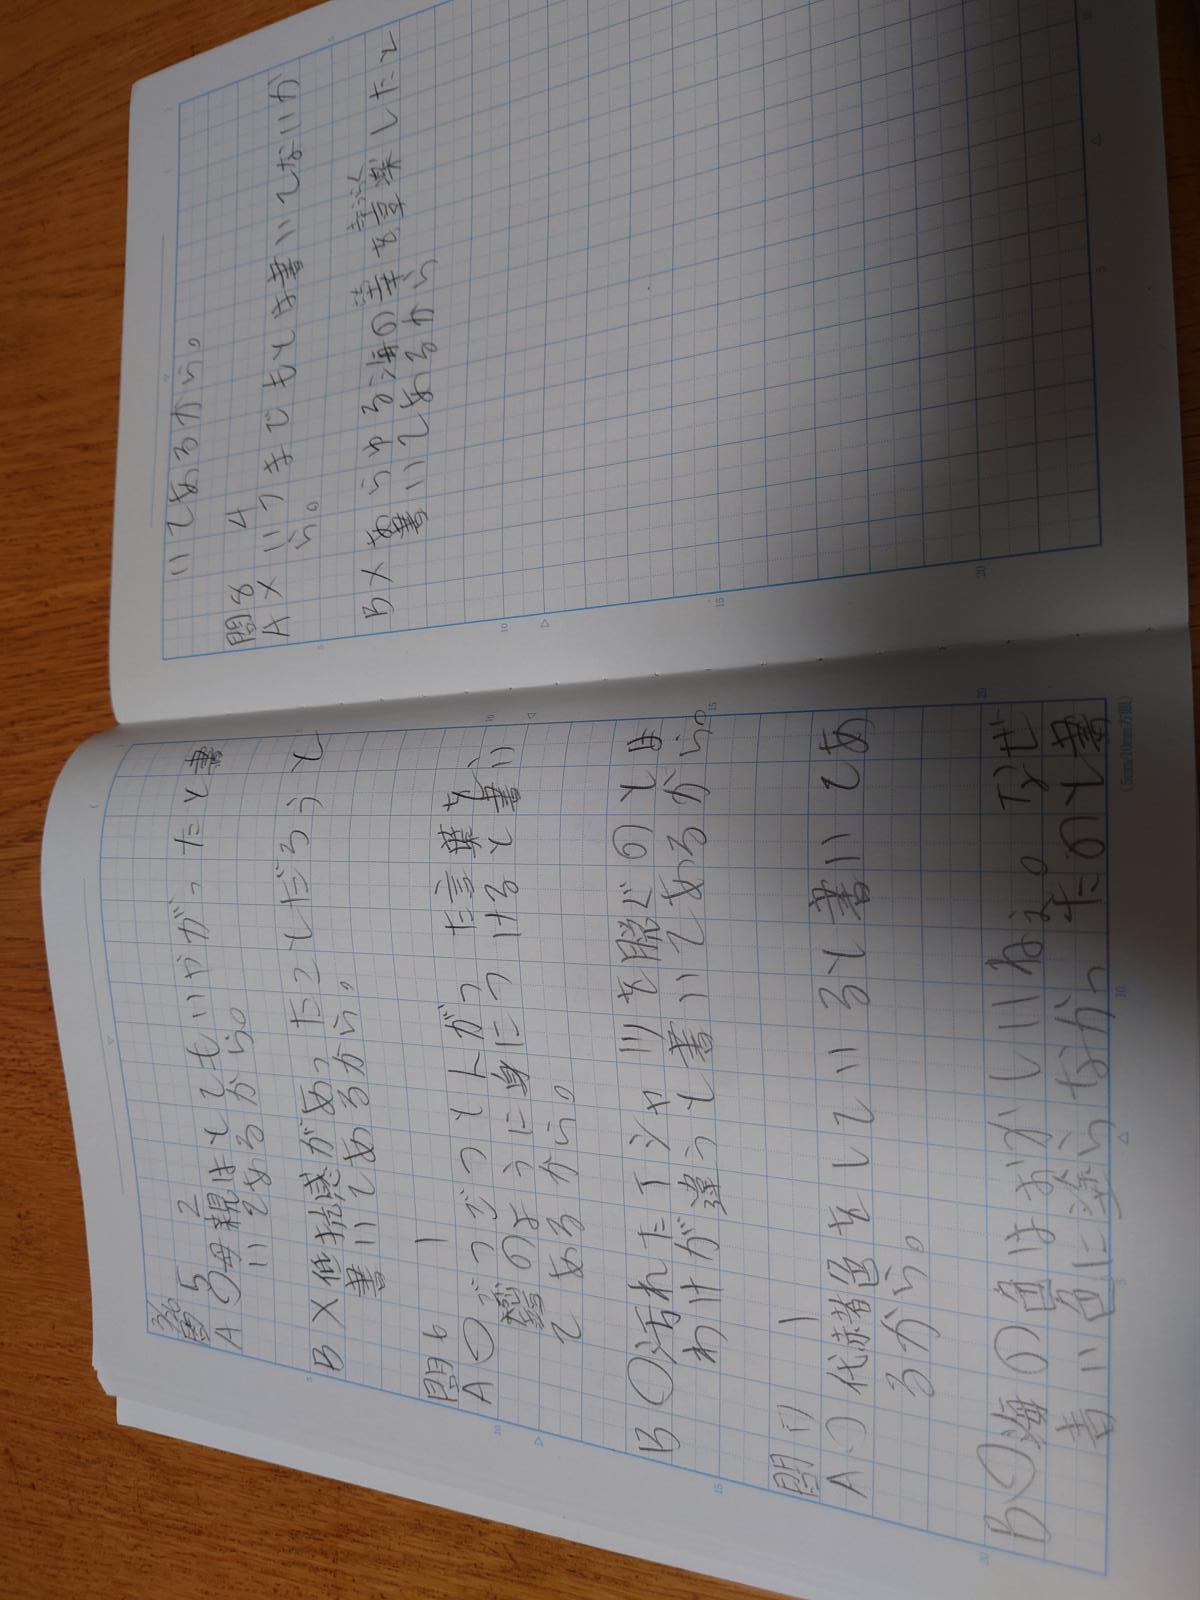 問5 2
A○母親はとてもいやがったと書
いてあるから。
B×抵抗感があったことだろうと
書いてあるから。
問6 1
A○ごつごつとトがった言葉を
鎧のように身につけると書い
てあるから。
B○汚れたTシャツを脱ぐのとは
わけが違うと書いてあるから。
問7 1
A○代赭色をしていると書いてあ
るから。
B○海の色はおかしいねぇ。なぜ
青い色に塗らなかったのと書
いてあるから。
問8 4
A×いつまでもとは書いてないか
ら。
B×あらゆる海の幸を享楽したと
書いてあるから